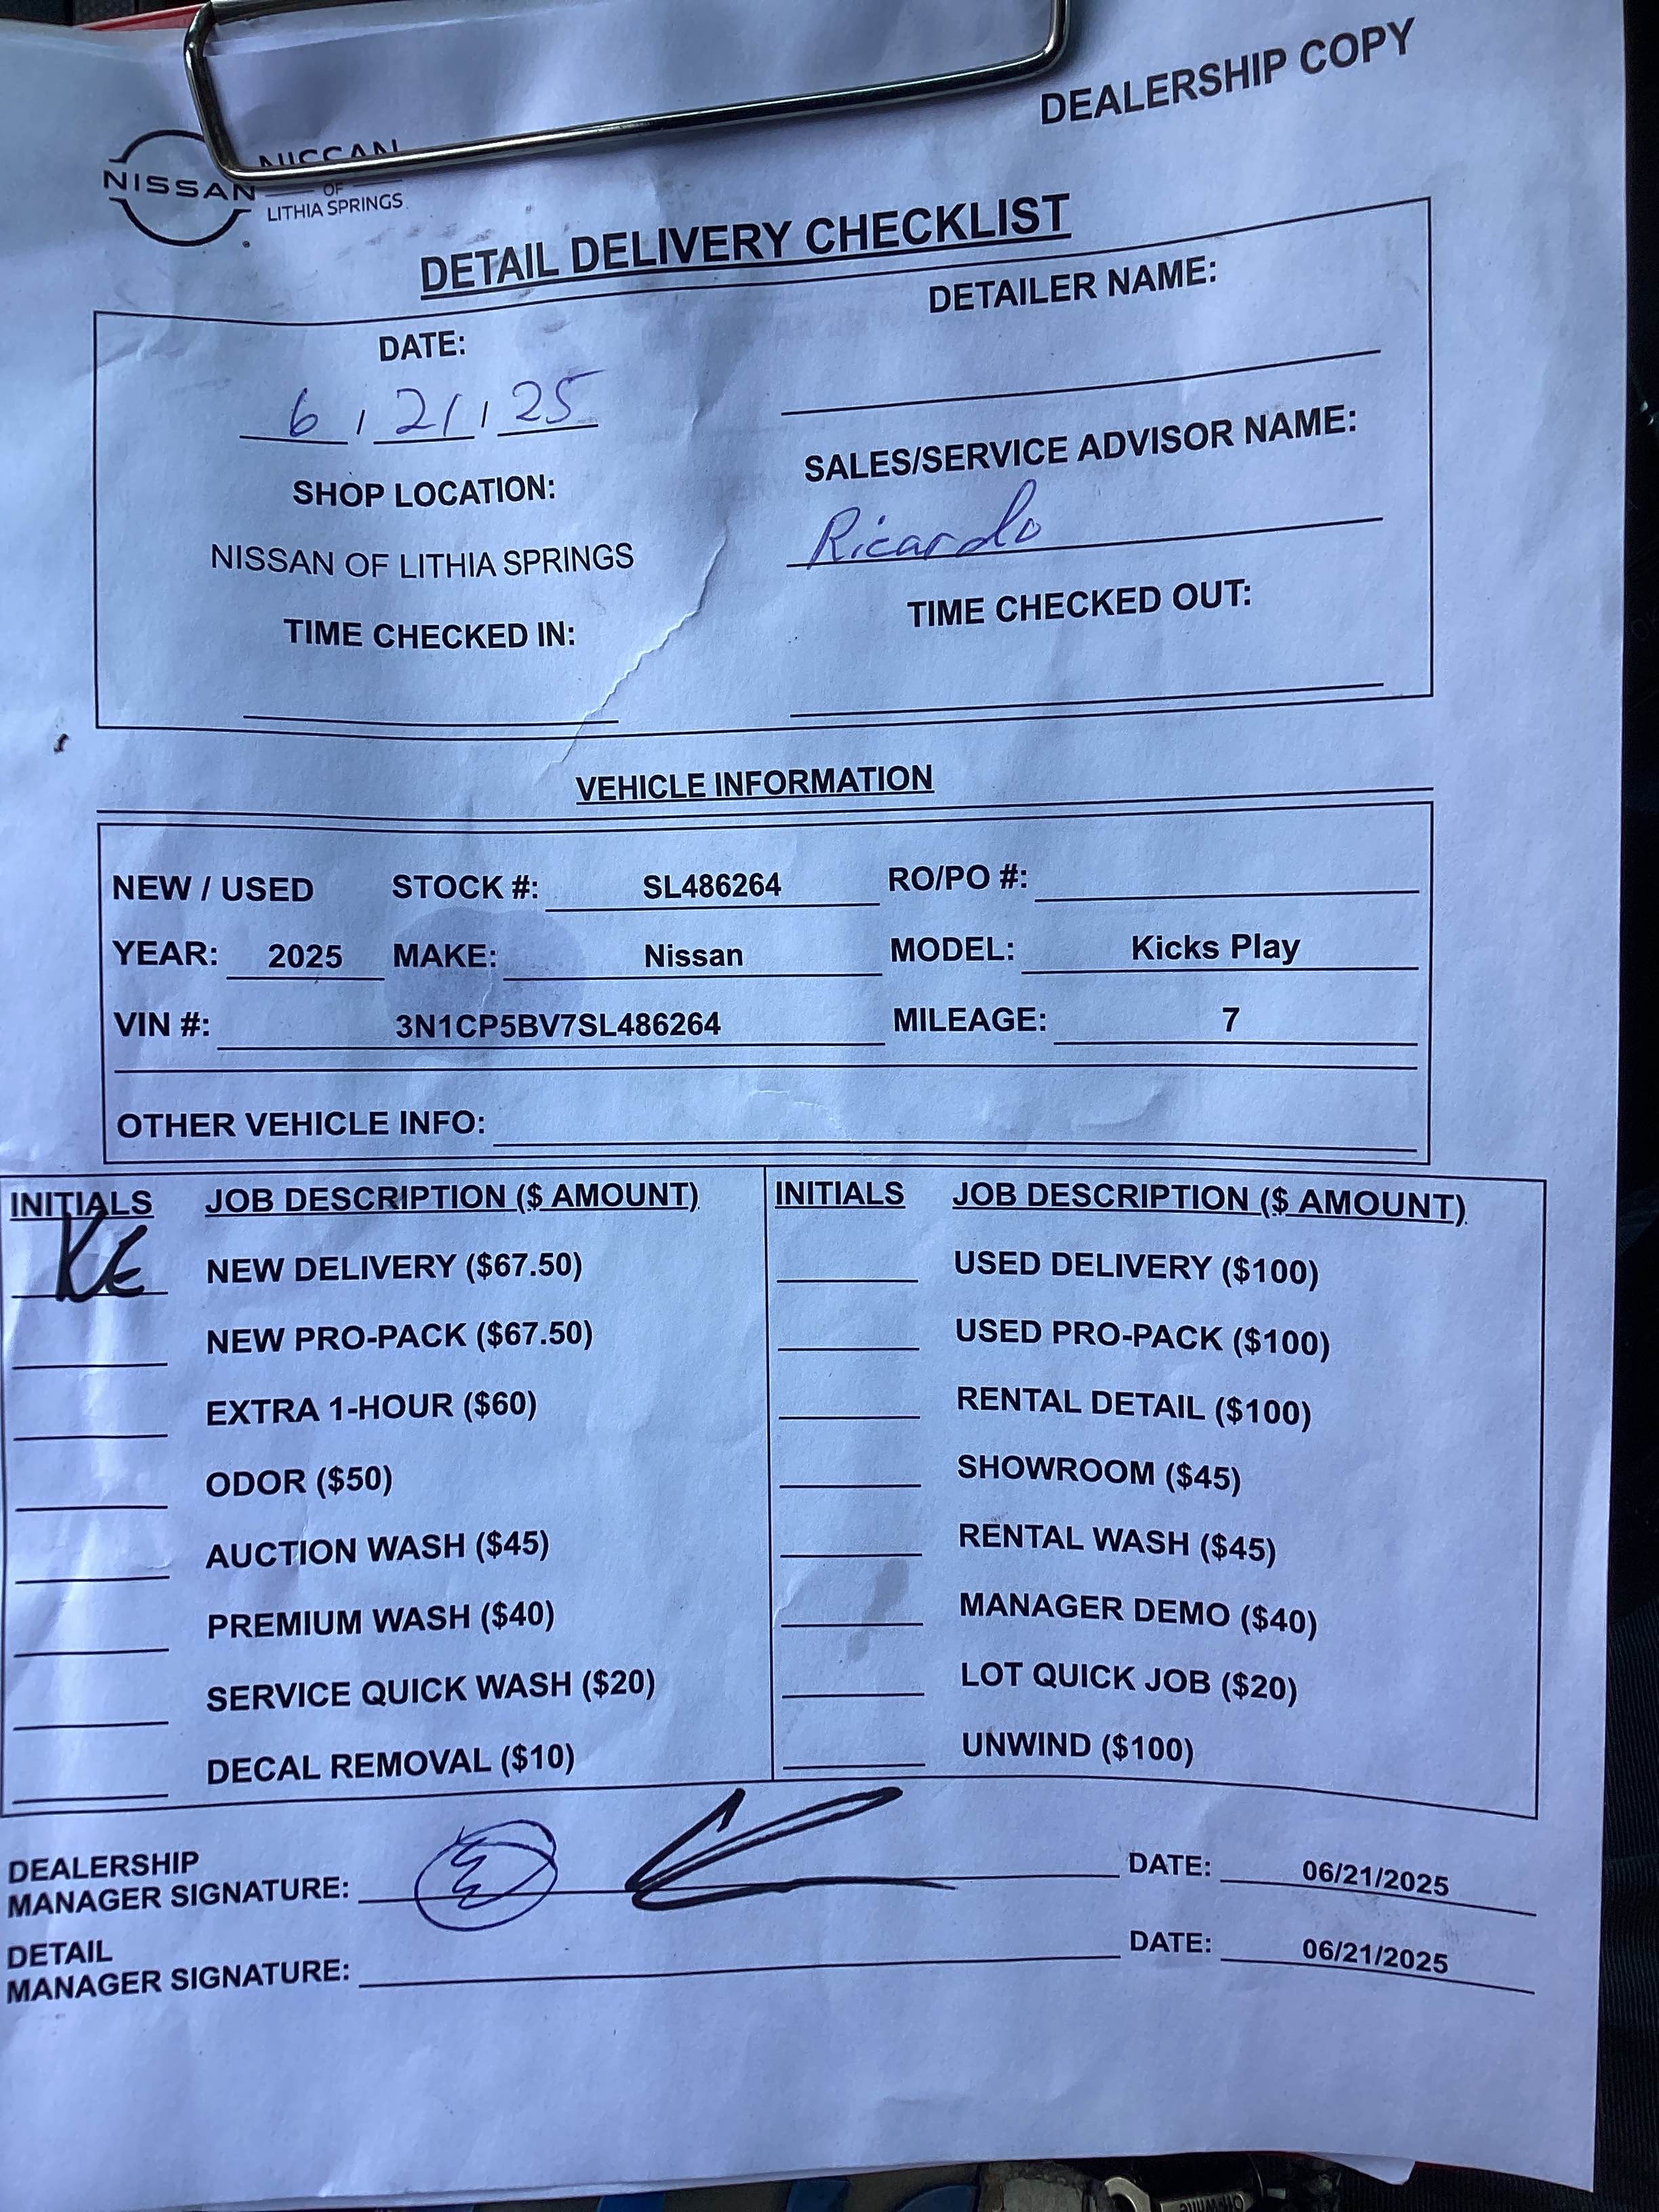 DEALERSHIP COPY
NISSAN
NISSAN
OF
LITHIA SPRINGS
DETAIL DELIVERY CHECKLIST
DATE:
6 / 21 / 25
DETAILER NAME:
SHOP LOCATION:
NISSAN OF LITHIA SPRINGS
SALES/SERVICE ADVISOR NAME:
Ricardo
TIME CHECKED IN:
TIME CHECKED OUT:
VEHICLE INFORMATION
NEW / USED STOCK #: SL486264 RO/PO #:
YEAR: 2025 MAKE: Nissan MODEL: Kicks Play
VIN #: 3N1CP5BV7SL486264 MILEAGE: 7
OTHER VEHICLE INFO:
INITIALS JOB DESCRIPTION ($ AMOUNT)
KE NEW DELIVERY ($67.50)
NEW PRO-PACK ($67.50)
EXTRA 1-HOUR ($60)
ODOR ($50)
AUCTION WASH ($45)
PREMIUM WASH ($40)
SERVICE QUICK WASH ($20)
DECAL REMOVAL ($10)
INITIALS JOB DESCRIPTION ($ AMOUNT)
USED DELIVERY ($100)
USED PRO-PACK ($100)
RENTAL DETAIL ($100)
SHOWROOM ($45)
RENTAL WASH ($45)
MANAGER DEMO ($40)
LOT QUICK JOB ($20)
UNWIND ($100)
DEALERSHIP
MANAGER SIGNATURE: DATE: 06/21/2025
DETAIL
MANAGER SIGNATURE: DATE: 06/21/2025